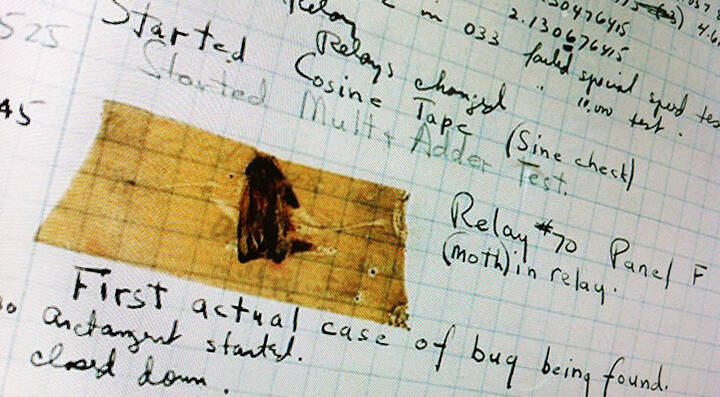 2.130476415
2.130676415
Relay
in 033 failed special speed test
Relays changed " 11,000 test.
525 Started Cosine Tape (Sine check)
Started Mult + Adder Test.
45 Relay #70 Panel F
(moth) in relay.
First actual case of bug being found.
arctangent started.
closed down.